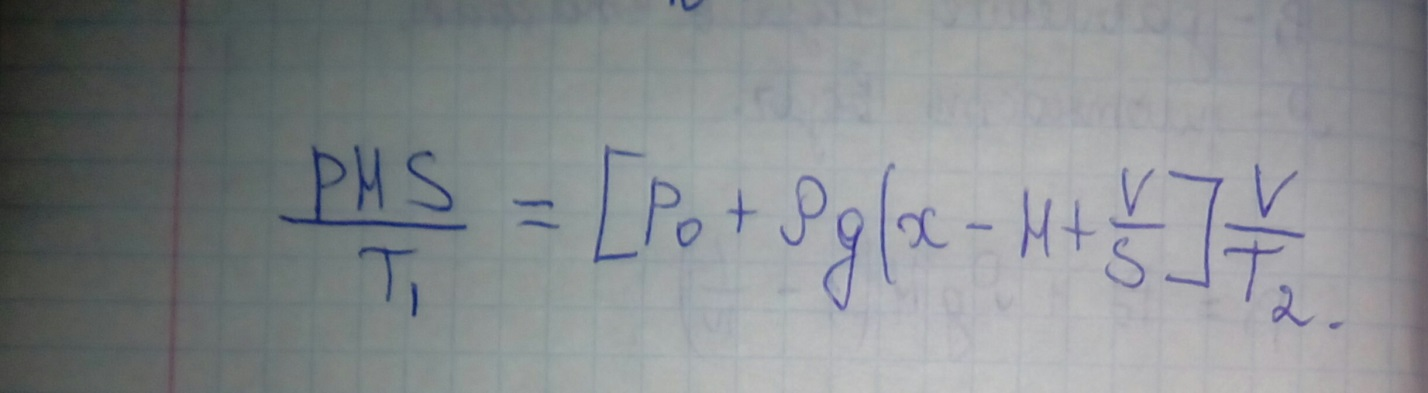 PHS/T₁ = [P₀ + ρg(x - H + V/S] V/T₂.